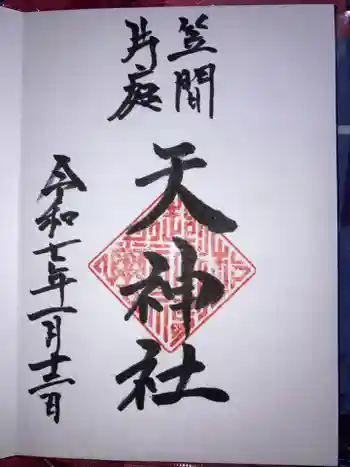 笠間
片庭
天神社
令和七年一月十三日